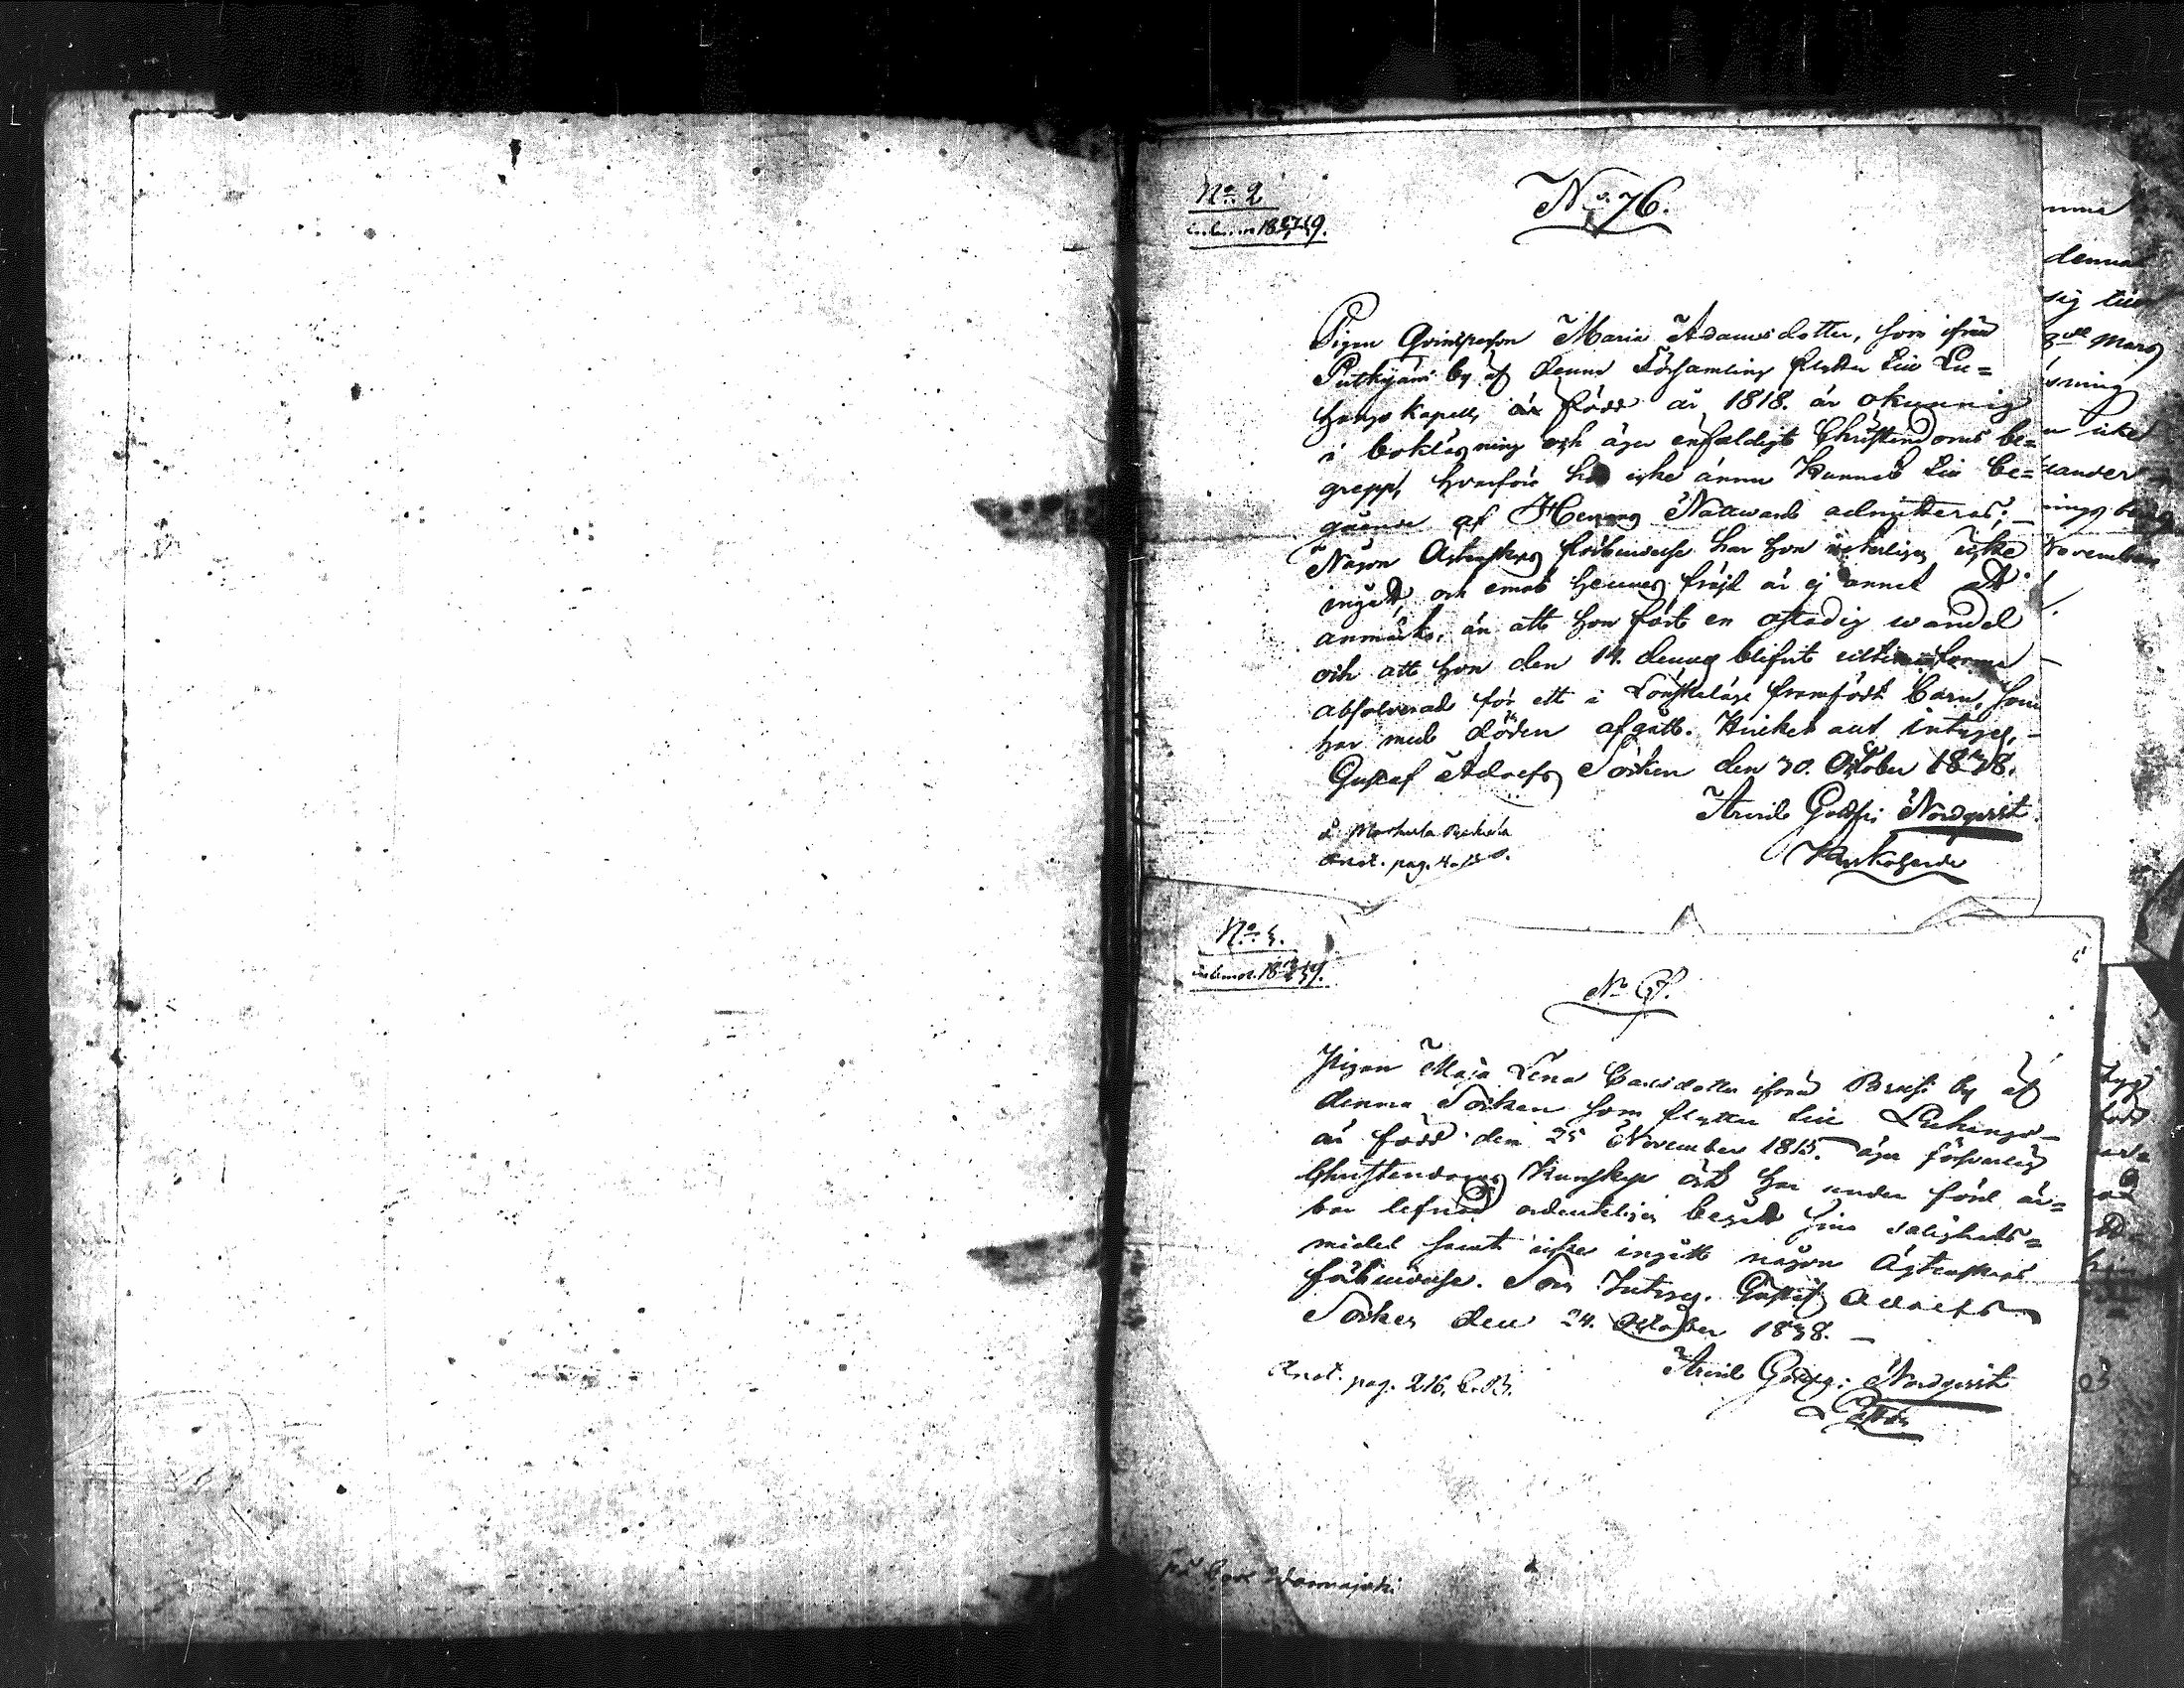 No 2
inlemn. 18 27/1 39.
No 76.
Pigan Qvinsperson Maria Adamsdotter, som ifrån
Putkijärvi by af denna Församling flyttar till Lu=
hango Kapell, är född år 1818. är okunnig
i bokläsning och äger enfaldigt Christendoms be=
grepp, hvarföre hon icke ännu kunnat till be=
gående af Herrans Nattward admitteras;
Någon Ägtenskaps förbindelse har hon veterligen icke
ingått, och emot hennes fräjd är ej annat att
anmärka, än att hon fört en ostadig wandel
och att hon den 14. dennes blifvit
absolverad för ett i Lönskaläge framfödt barn, som
har med döden afgått. Hvilket allt intygas,
Gustaf Adolfs Socken den 30. October 1838.
Arvid Gottfr: Nordqvist
Kyrkoherde
Anot. pag.
No 5.
inlemn. 18 39.
No 67.
Pigan Maja Lena Carlsdotter ifrån by af
denna Socken som flyttar till Luhango
är född den 25 November 1815. äger försvarlig
Christendoms Kunskap och har under förd är=
bar lefnad ordenteligen begått sina salighets=
medel samt icke ingått någon Ägtenskaps
förbindelse. Som Intyg. Gustaf Adolfs
Socken den 24. October 1838.
Arvid Gottfr: Nordqvist
Pastor
Anot. pag. 216.
denna
sig till
Mars
icke
November